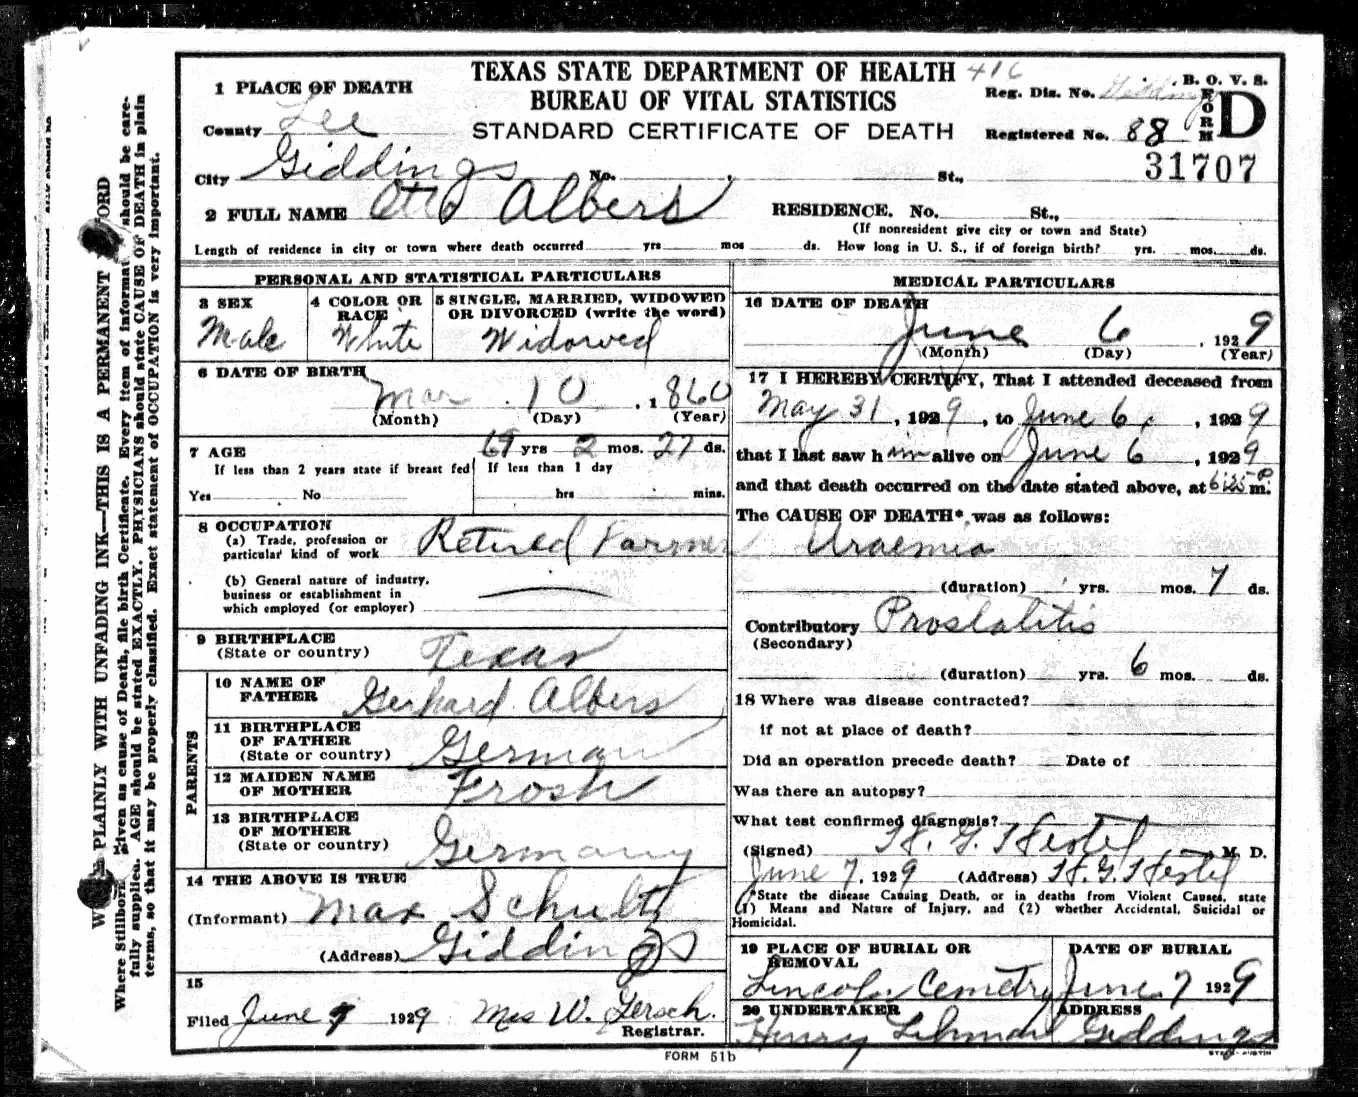 TEXAS STATE DEPARTMENT OF HEALTH 416
BUREAU OF VITAL STATISTICS
STANDARD CERTIFICATE OF DEATH
B. O. V. S.
FORM D
Reg. Dis. No. Giddings
Registered No. 88
31707
1 PLACE OF DEATH
County Lee
City Giddings No. St.,
2 FULL NAME Otto Albers RESIDENCE. No. St.,
(If nonresident give city or town and State)
Length of residence in city or town where death occurred yrs mos ds. How long in U. S., if of foreign birth? yrs. mos. ds.
PERSONAL AND STATISTICAL PARTICULARS
3 SEX
Male
4 COLOR OR RACE
White
5 SINGLE, MARRIED, WIDOWED
OR DIVORCED (write the word)
Widowed
6 DATE OF BIRTH
Mar 10 , 1860
(Month) (Day) (Year)
7 AGE 69 yrs 2 mos. 27 ds.
If less than 2 years state if breast fed If less than 1 day
Yes No hrs mins.
8 OCCUPATION
(a) Trade, profession or
particular kind of work Retired Farmer
(b) General nature of industry,
business or establishment in
which employed (or employer)
9 BIRTHPLACE
(State or country) Texas
PARENTS
10 NAME OF
FATHER Gerhard Albers
11 BIRTHPLACE
OF FATHER
(State or country) German
12 MAIDEN NAME
OF MOTHER Frosh
13 BIRTHPLACE
OF MOTHER
(State or country) Germany
14 THE ABOVE IS TRUE
(Informant) Max Schultz
(Address) Giddings
15
Filed June 7 1929 Mrs W. Gersch.
Registrar.
MEDICAL PARTICULARS
16 DATE OF DEATH
June 6 , 1929
(Month) (Day) (Year)
17 I HEREBY CERTIFY, That I attended deceased from
May 31 , 1929 , to June 6, , 1929
that I last saw him alive on June 6 , 1929
and that death occurred on the date stated above, at 6:25 P m.
The CAUSE OF DEATH* was as follows:
Uraemia
(duration) yrs. mos. 7 ds.
Contributory Prostatitis
(Secondary)
(duration) yrs. 6 mos. ds.
18 Where was disease contracted?
if not at place of death?
Did an operation precede death? Date of
Was there an autopsy?
What test confirmed diagnosis?
(Signed) H. G. Hertel M. D.
June 7, 1929 (Address) H. G. Hertel
*State the disease Causing Death, or in deaths from Violent Causes, state
(1) Means and Nature of Injury, and (2) whether Accidental, Suicidal or
Homicidal.
19 PLACE OF BURIAL OR
REMOVAL
Lincoln Cemetry
DATE OF BURIAL
June 7 1929
20 UNDERTAKER
Henry Lehman
ADDRESS
Giddings
FORM 51b
PLAINLY WITH UNFADING INK—THIS IS A PERMANENT
Where Stillborn given as cause of Death, file birth Certificate. Every item of information should be care-
fully supplied. AGE should be stated EXACTLY. PHYSICIANS should state CAUSE OF DEATH in plain
terms, so that it may be properly classified. Exact statement of OCCUPATION is very important.